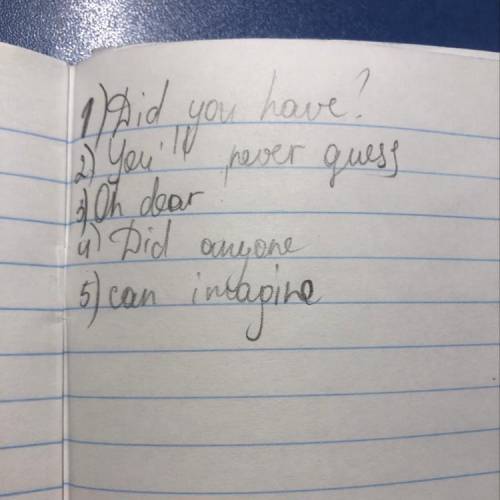 1) Did you have?
2) You'll never guess
3) Oh dear
4) Did anyone
5) can imagine